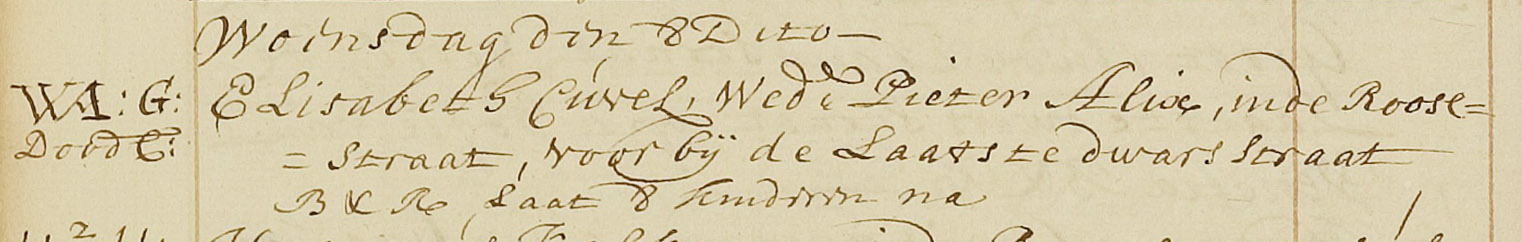 Woensdag den 8 Dito —
WA: G: Elisabeth Cuvel, Wed:e Pieter Alix, inde Roose=
Dood G: = straat, voor bij de Laatste dwars straat
B & R Laat 8 kinderen na